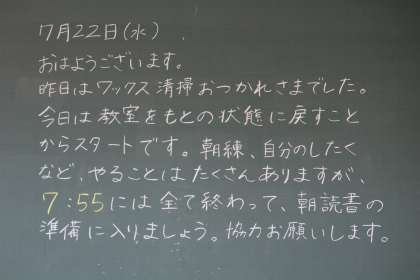 7月22日(水)
おはようございます。
昨日はワックス清掃おつかれさまでした。
今日は教室をもとの状態に戻すこと
からスタートです。朝練、自分のしたく
など、やることはたくさんありますが、
7:55には全て終わって、朝読書の
準備に入りましょう。協力お願いします。